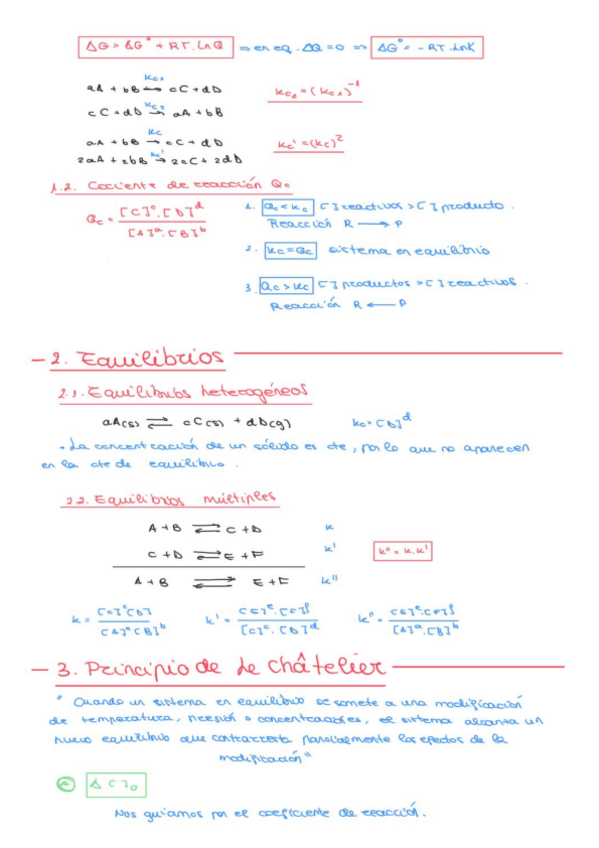 ΔG = ΔG° + RT.LnQ ⇒ en eq. ΔQ = 0 ⇒ ΔG° = - RT.LnK
Kc1
aA + bB → cC + dD Kc2 = (Kc1)⁻¹
Kc2
cC + dD → aA + bB
Kc
aA + bB → cC + dD Kc' = (Kc)²
Kc'
2aA + 2bB → 2cC + 2dD
1.2. Cociente de reacción Qc
Qc = [C]ᶜ.[D]ᵈ / [A]ᵃ.[B]ᵇ
1. Qc < Kc [ ] reactivos > [ ] producto.
Reacción R → P
2. Kc = Qc sistema en equilibrio
3. Qc > Kc [ ] productos > [ ] reactivos.
Reacción R ← P
- 2. Equilibrios
2.1. Equilibrios heterogéneos
aA(s) ⇌ cC(s) + dD(g) Kc = [D]ᵈ
• La concentración de un sólido es cte, por lo que no aparecen
en la cte de equilibrio.
2.2. Equilibrios múltiples
A + B ⇌ C + D K
C + D ⇌ E + F K' K'' = K.K'
A + B ⇌ E + F K''
K = [C]ᶜ[D] / [A]ᵃ[B]ᵇ K' = [E]ᵉ.[F]ᶠ / [C]ᶜ.[D]ᵈ K'' = [E]ᵉ.[F]ᶠ / [A]ᵃ.[B]ᵇ
- 3. Principio de Le Châtelier
" Cuando un sistema en equilibrio se somete a una modificación
de temperatura, presión o concentraciones, el sistema alcanza un
nuevo equilibrio que contrarresta parcialmente los efectos de la
modificación"
Δ[ ]₀
Nos guiamos por el coeficiente de reacción.